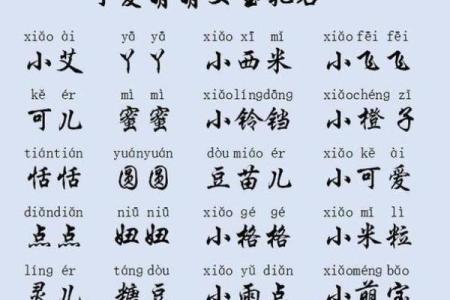 xiǎo ài yā yā xiǎo xī mǐ xiǎo fēi fēi
小艾 丫丫 小西米 小飞飞
kě ér mì mì xiǎolíngdāng xiǎochéng zǐ
可儿 蜜蜜 小铃铛 小橙子
tiántián yuányuán dòu miáo ér xiǎo kě ài
恬恬 圆圆 豆苗儿 小可爱
diǎndiǎn niū niū xiǎo gé gé xiǎo mǐ lì
点点 妞妞 小格格 小米粒
líng ér táng dòu xiǎo yǔ diǎn xiǎoméng bǎo
灵儿 糖豆 小雨点